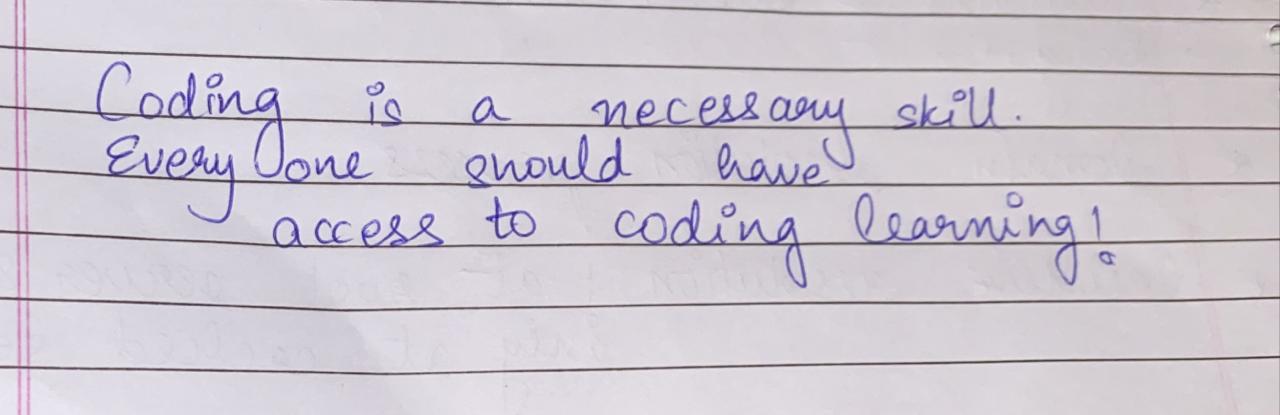 Coding is a necessary skill.
Every one should have
access to coding learning!